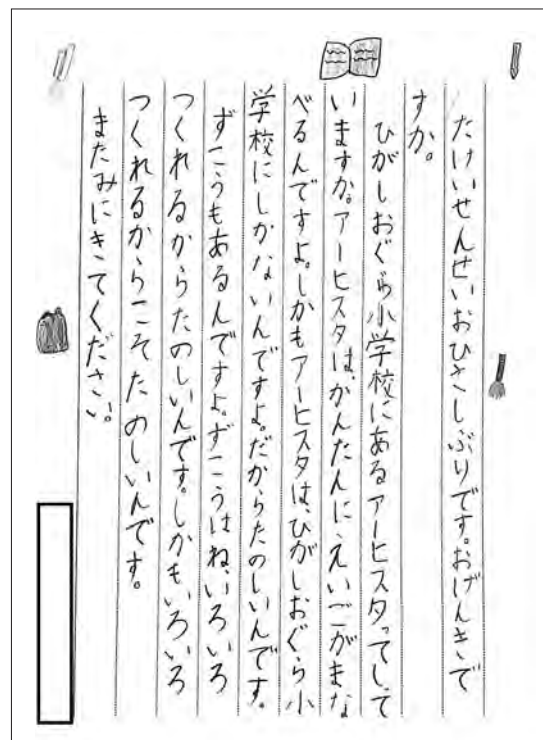 たけいせんせいおひさしぶりです。おげんきで
すか。
ひがしおぐら小学校にあるアーヒスタってしって
いますか。アーヒスタは、かんたんにえいごがまな
べるんですよ。しかもアーヒスタは、ひがしおぐら小
学校にしかないんですよ。だからたのしいんです。
ずこうもあるんですよ。ずこうはね、いろいろ
つくれるからたのしいんです。しかもいろいろ
つくれるからこそたのしいんです。
またみにきてください。